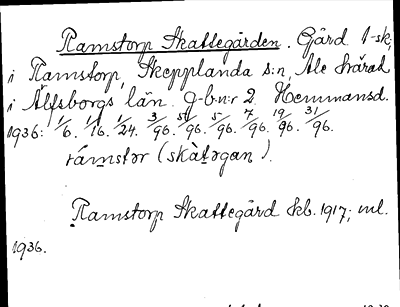 Ramstorp Skattegården. Gård 1-sk,
i Ramstorp, Skepplanda s:n, Ale härad
i Älfsborgs län. J-b-n:r 2. Hemmansd.
1936: 1/6. 1/16. 1/24. 3/96. 5/96. 7/96. 19/96. 31/96.
rámstər (skàtərgan).
Ramstorp Skattegård Ekb. 1917; ml.
1936.